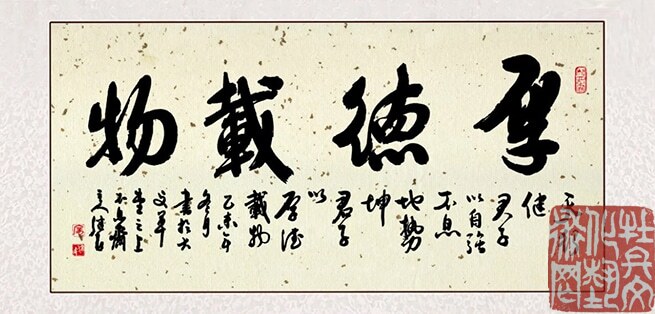 厚德載物
天行
健
君子
以自強
不息
地勢
坤
君子
以
厚德
載物
乙未年
冬月
書於大